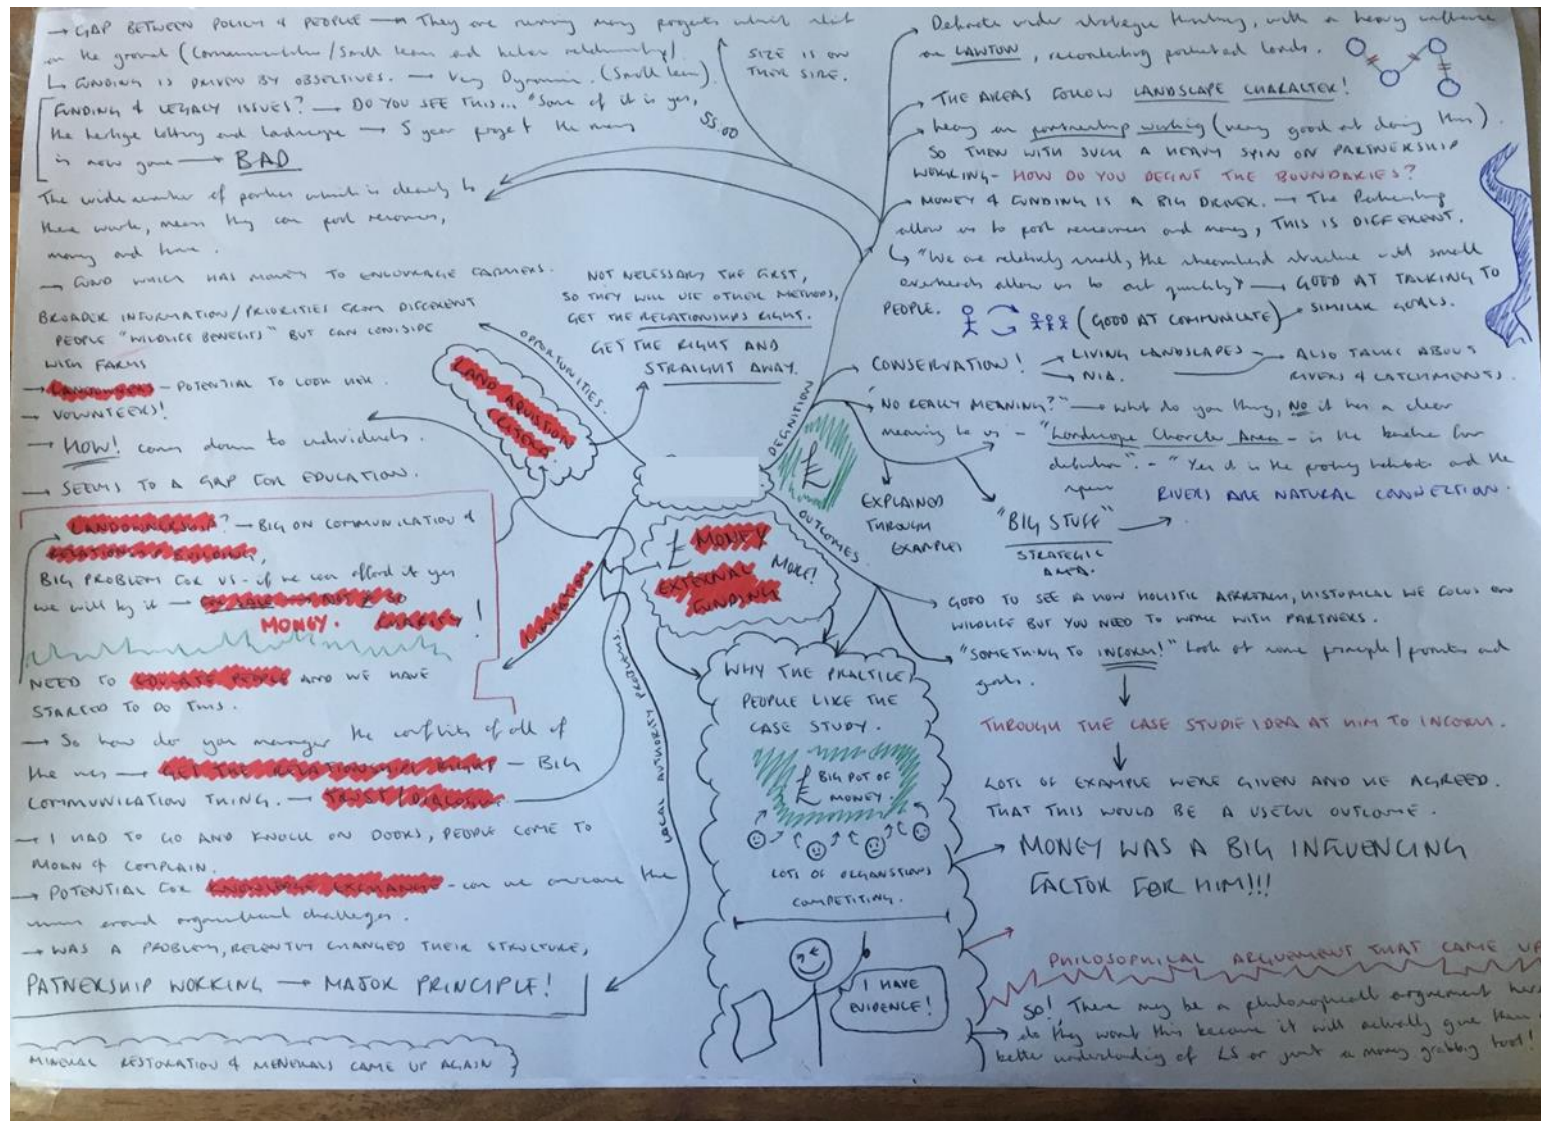 → GAP BETWEEN POLICY & PEOPLE → They are running many projects which
on the ground (Conservation/Small team and better relationship)
↳ FUNDING IS DRIVEN BY OBJECTIVES. → Very Dynamic. (Small team)
FUNDING & LEGACY ISSUES? → DO YOU SEE THIS... "Some of it is yes,
the heritage lottery and landscape → 5 year project the money
is now gone → BAD
The wide number of parties which is clearly to
there work, means they can pool resources,
money and time.
→ FUND WHICH HAS MONEY TO ENCOURAGE FARMERS.
BROADER INFORMATION/PRIORITIES FROM DIFFERENT
PEOPLE "WILDLIFE BENEFITS" BUT CAN
WITH FARMS
→ LANDOWNERS - POTENTIAL TO LOOK
→ VOLUNTEERS!
→ HOW! comes down to individuals.
→ SEEMS TO A GAP FOR EDUCATION.
LANDOWNERSHIP? - BIG ON COMMUNICATION &
RELATIONSHIP BUILDING,
BIG PROBLEM FOR US - if we can afford it yes
we will buy it →
MONEY. CHARITY!
NEED TO EDUCATE PEOPLE AND WE HAVE
STARTED TO DO THIS.
→ So how do you manager the conflicts of all of
the uses → GET THE RELATIONSHIPS RIGHT - BIG
COMMUNICATION THING. → TRUST/DIALOGUE
→ I HAD TO GO AND KNOCK ON DOORS, PEOPLE COME TO
MOAN & COMPLAIN.
→ POTENTIAL FOR KNOWLEDGE EXCHANGE - can we overcome the
around challenges.
→ WAS A PROBLEM, RECENTLY CHANGED THEIR STRUCTURE,
PATNERSHIP WORKING → MAJOR PRINCIPLE!
MINERAL RESTORATION & MENERALS CAME UP AGAIN
SIZE IS ON
THEIR SIDE.
55.00
NOT NECESSARY THE FIRST,
SO THEY WILL USE OTHER METHODS,
GET THE RELATIONSHIPS RIGHT.
GET THE RIGHT AND
STRAIGHT AWAY.
OPPORTUNITIES.
LAND
DEFINITION
£
OUTCOMES
£ MONEY
MORE!
EXTERNAL
FUNDING
LOCAL AUTHORITY PROBLEMS
WHY THE PRACTICE
PEOPLE LIKE THE
CASE STUDY.
£ BIG POT OF
MONEY.
LOTS OF ORGANSTIONS
COMPETITING.
I HAVE
EVIDENCE!
wider strategic thinking, with a heavy influence
on LAWTON, reconnecting
→ THE AREAS FOLLOW LANDSCAPE CHARACTER!
→ heavy on partnership working (very good at doing this).
SO THEN WITH SUCH A HEAVY SPIN ON PARTNERSHIP
WORKING - HOW DO YOU DEFINE THE BOUNDARIES?
→ MONEY & FUNDING IS A BIG DRIVER. → The Partnership
allow us to pool resources and money, THIS IS DIFFERENT.
↳ "We are relatively small, the streamlined structure with small
overheads allow us to act quickly" → GOOD AT TALKING TO
PEOPLE. (GOOD AT COMMUNICATE) → SIMILAR GOALS.
→ CONSERVATION! → LIVING LANDSCAPES → ALSO TALKS ABOUT
→ NIA. RIVERS & CATCHMENTS.
"NO REALLY MEANING?" → what do you thing, NO it has a clear
meaning to us - "Landscape Character Area - is the baseline for
definition". - "Yes it is the habitats and the
RIVERS ARE NATURAL CONNECTION.
EXPLAINED
THROUGH
EXAMPLES
"BIG STUFF" →
STRATEGIC
AREA.
→ GOOD TO SEE A HOLISTIC APPROACH, HISTORICAL WE FOCUS ON
WILDLIFE BUT YOU NEED TO WORK WITH PARTNERS.
→ "SOMETHING TO INFORM!!" Look at some principle/pointers and
goals.
THROUGH THE CASE STUDIE IDEA AT HIM TO INFORM.
LOTS OF EXAMPLE WERE GIVEN AND HE AGREED.
THAT THIS WOULD BE A USEFUL OUTCOME.
→ MONEY WAS A BIG INFLUENCING
FACTOR FOR HIM!!!
PHILOSOPHICAL ARGUEMENT THAT CAME UP
SO!, There may be a philosophicall argument here
→ do they want this because it will actually give them a
better understanding of LS or just a money grabbig tool!